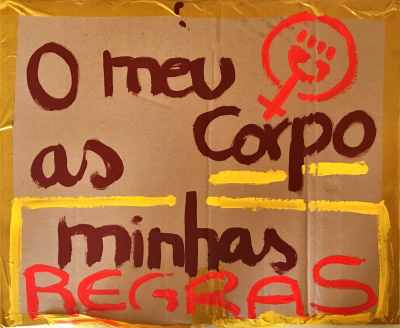 O meu
corpo
as
minhas
REGRAS